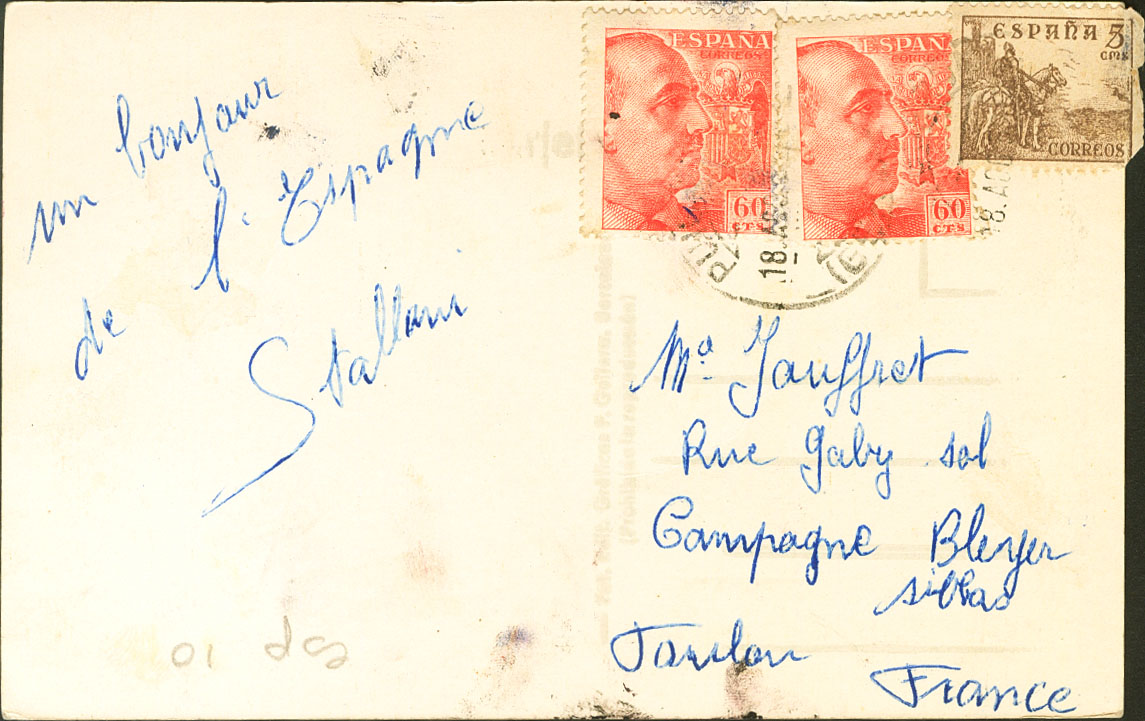 un bonjour
de l'Espagne
Stallani
ESPAÑA
CORREOS
60
CTS
ESPAÑA
CORREOS
60
CTS
ESPAÑA 5
CMS
CORREOS
18. AGO
18. AGO
Md. Jauffret
Rue Gaby sol
Campagne Blenger
sillas
Toulon
France